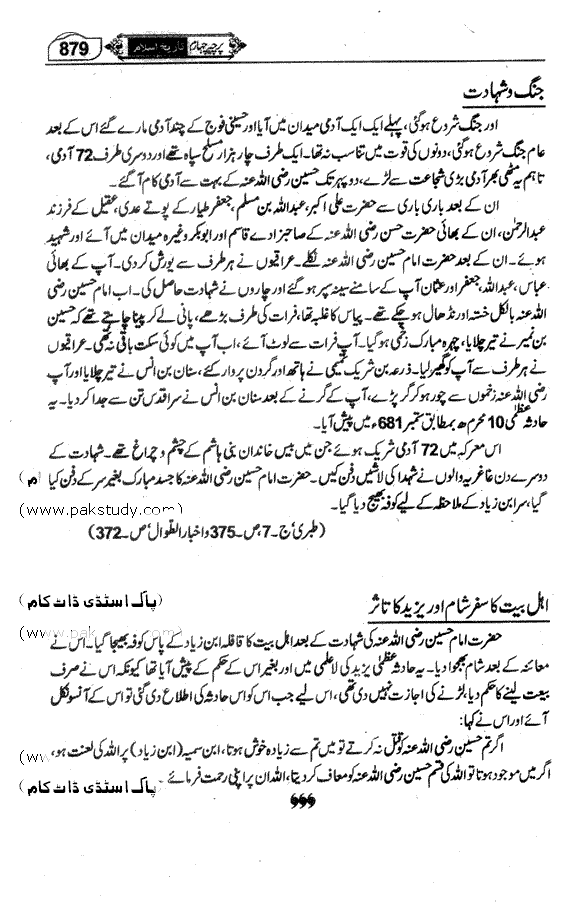 879 تاریخ اسلام پرچہ چہارم
جنگ و شہادت
اور جنگ شروع ہوگئی، پہلے ایک ایک آدمی میدان میں آیا اور حسینی فوج کے چند آدمی مارے گئے اس کے بعد
عام جنگ شروع ہوگئی، دونوں کی قوت میں تناسب نہ تھا۔ ایک طرف چار ہزار مسلح سپاہ تھے اور دوسری طرف 72 آدمی،
تاہم یہ مٹھی بھر آدمی بڑی شجاعت سے لڑے، دوپہر تک حسین رضی اللہ عنہ کے بہت سے آدمی کام آگئے۔
ان کے بعد باری باری سے حضرت علی اکبر، عبداللہ بن مسلم، جعفر طیار کے پوتے عدی، عقیل کے فرزند
عبدالرحمٰن، ان کے بھائی حضرت حسن رضی اللہ عنہ کے صاحبزادے قاسم اور ابوبکر وغیرہ میدان میں آئے اور شہید
ہوئے۔ ان کے بعد حضرت امام حسین رضی اللہ عنہ نکلے۔ عراقیوں نے ہر طرف سے یورش کر دی۔ آپ کے بھائی
عباس، عبداللہ، جعفر اور عثمان آپ کے سامنے سینہ سپر ہوگئے اور چاروں نے شہادت حاصل کی۔ اب امام حسین رضی
اللہ عنہ بالکل خستہ اور نڈھال ہوچکے تھے۔ پیاس کا غلبہ تھا، فرات کی طرف بڑھے، پانی لے کر پینا چاہتے تھے کہ حسین
بن نمیر نے تیر چلایا، چہرہ مبارک زخمی ہوگیا۔ آپ فرات سے لوٹ آئے، اب آپ میں کوئی سکت باقی نہ تھی۔ عراقیوں
نے ہر طرف سے آپ کو گھیر لیا۔ ذرعہ بن شریک تمیمی نے ہاتھ اور گردن پر وار کئے، سنان بن انس نے تیر چلایا اور آپ
رضی اللہ عنہ زخموں سے چور ہوکر گر پڑے، آپ کے گرنے کے بعد سنان بن انس نے سر اقدس تن سے جدا کر دیا۔ یہ
حادثہ عظمیٰ 10 محرم ھ بمطابق ستمبر 681ء میں پیش آیا۔
اس معرکہ میں 72 آدمی شریک ہوئے جن میں بیس خاندان بنی ہاشم کے چشم و چراغ تھے۔ شہادت کے
دوسرے دن غاغریہ والوں نے شہدا کی لاشیں دفن کیں۔ حضرت امام حسین رضی اللہ عنہ کا جسد مبارک بغیر سر کے دفن کیا
گیا، سر ابن زیاد کے ملاحظہ کے لیے کوفہ بھیج دیا گیا۔
(www.pakstudy.com)
(طبری ج۔7، ص۔375 و اخبار الطوال ص۔372)
اہل بیت کا سفر شام اور یزید کا تاثر
(پاک اسٹڈی ڈاٹ کام)
حضرت امام حسین رضی اللہ عنہ کی شہادت کے بعد اہل بیت کا قافلہ ابن زیاد کے پاس کوفہ بھیجا گیا۔ اس نے
معائنہ کے بعد شام بھجوا دیا۔ یہ حادثہ عظمیٰ یزید کی لاعلمی میں اور بغیر اس کے حکم کے پیش آیا تھا کیونکہ اس نے صرف
بیعت لینے کا حکم دیا، لڑنے کی اجازت نہیں دی تھی، اس لیے جب اس کو اس حادثہ کی اطلاع دی گئی تو اس کے آنسو نکل
آئے اور اس نے کہا:
اگر تم حسین رضی اللہ عنہ کو قتل نہ کرتے تو میں تم سے زیادہ خوش ہوتا، ابن سمیہ (ابن زیاد) پر اللہ کی لعنت ہو،
اگر میں موجود ہوتا تو اللہ کی قسم حسین رضی اللہ عنہ کو معاف کر دیتا، اللہ ان پر اپنی رحمت فرمائے۔
پاک اسٹڈی ڈاٹ کام)